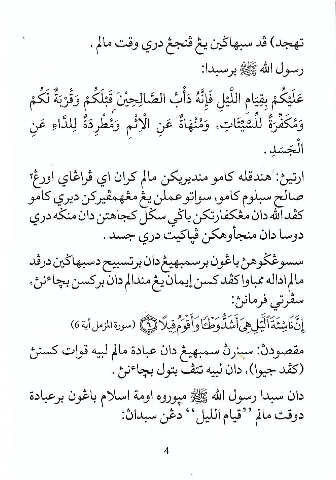 تهجد) ڤد سبهاݢين يڠ ڤنجڠ دري وقت مالم .
رسول الله ﷺ برسبدا:
عَلَيْكُمْ بِقِيَامِ اللَّيْلِ فَإِنَّهُ دَأْبُ الصَّالِحِيْنَ قَبْلَكُمْ وَقُرْبَةٌ لَكُمْ
وَمَكْفَرَةٌ لِلسَّيِّئَاتِ، وَمَنْهَاةٌ عَنِ الْإِثْمِ وَمَطْرَدَةٌ لِلدَّاءِ عَنِ
الْجَسَدِ.
ارتيڽ: هندقله كامو منديريكن مالم كران اي ڤراڠاي اورڠ٢
صالح سبلوم كامو، سواتو عملن يڠ مڠهمڤيركن ديري كامو
كڤد الله دان مڠكفارتكن باݢي سݢل كجاهتن دان منݢه دري
دوسا دان منجاٴوهكن ڤڽاكيت دري جسد .
سسوڠݢوهڽ باڠون برسمبهيڠ دان برتسبيح دسبهاݢين درڤد
مالم اداله ممباوا كڤد كسن ايمان يڠ مندالم دان بركسن بچاٴنڽ،
سڤرتي فرمانڽ:
إِنَّ نَاشِئَةَ الَّيْلِ هِيَ أَشَدُّ وَطْـًٔا وَأَقْوَمُ قِيلًا ﴿٦﴾ (سورة المزمل أية 6)
مقصودڽ: سبنرڽ سمبهيڠ دان عبادة مالم لبيه قوات كسنڽ
(كڤد جيوا)، دان لبيه تتڤ بتول بچاٴنڽ.
دان سبدا رسول الله ﷺ مڽوروه اومة اسلام باڠون برعبادة
دوقت مالم "قيام الليل" دڠن سبداڽ:
4